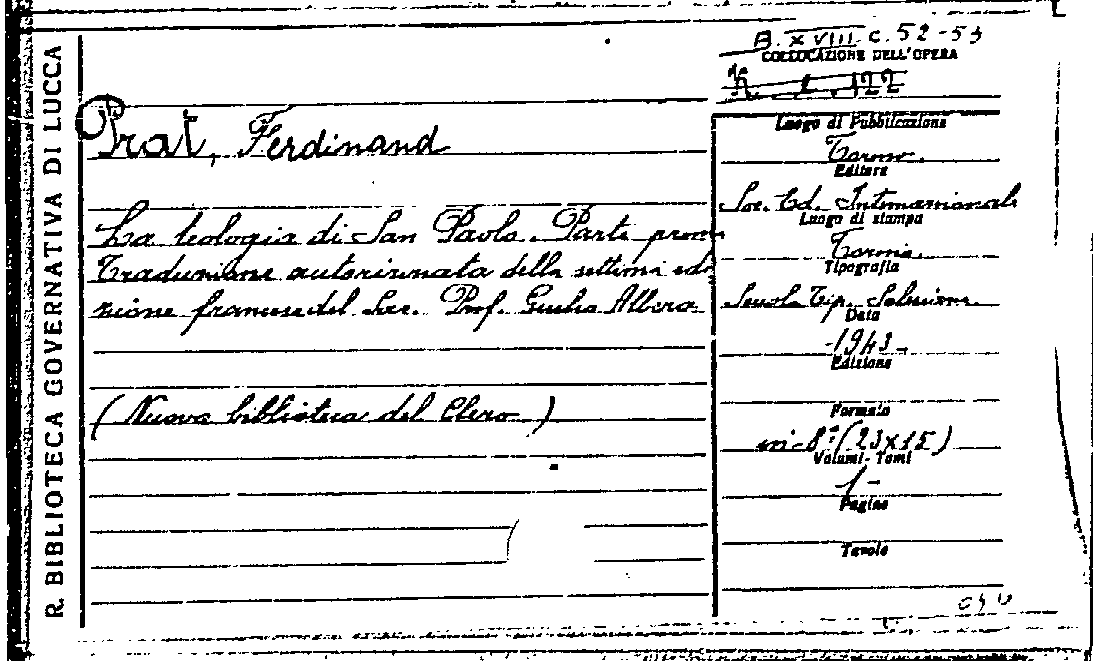 R. BIBLIOTECA GOVERNATIVA DI LUCCA
B. XVIII. C. 52-53
COLLOCAZIONE DELL'OPERA
122
Prat, Ferdinand
La teologia di San Paolo. Parte prima
Traduzione autorizzata della settima edi
zione francese del Sac. Prof. Giulio Albera
(Nuova biblioteca del Clero)
Luogo di Pubblicazione
Torino.
Editore
Soc. Ed. Internazionale
Luogo di stampa
Torino.
Tipografia
Scuola Tip. Salesiana
Data
-1943-
Edizione
Formato
in-8° (23x15)
Volumi-Tomi
1-
Pagine
Tavole